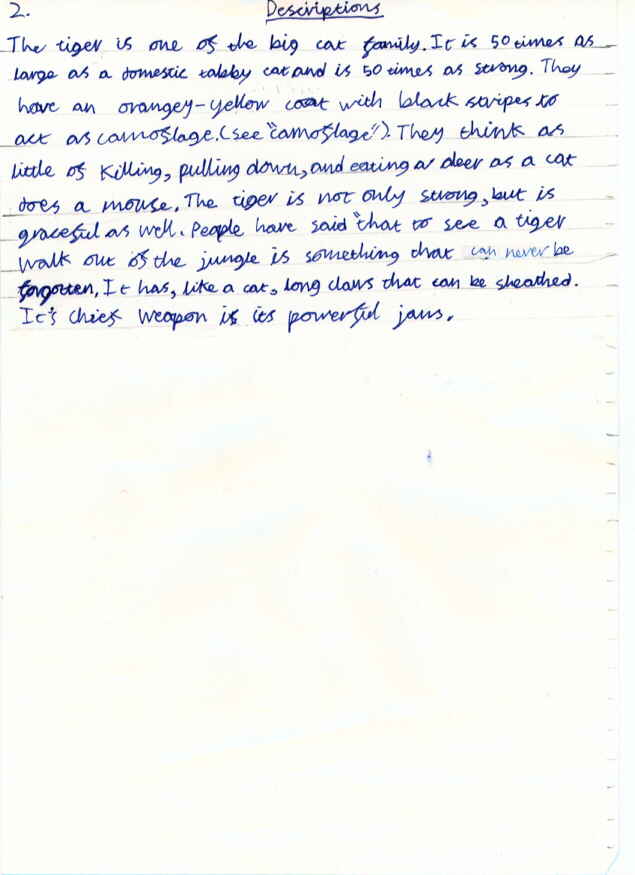 2. Descriptions
The tiger is one of the big cat family. It is 50 times as
large as a domestic tabby cat and is 50 times as strong. They
have an orangey-yellow coat with black stripes to
act as camoflage. (see "camoflage"). They think as
little of killing, pulling down, and eating a deer as a cat
does a mouse. The tiger is not only strong, but is
graceful as well. People have said "that to see a tiger
walk out of the jungle is something that can never be
forgotten, It has, like a cat, long claws that can be sheathed.
It's chief weapon is its powerful jaws.